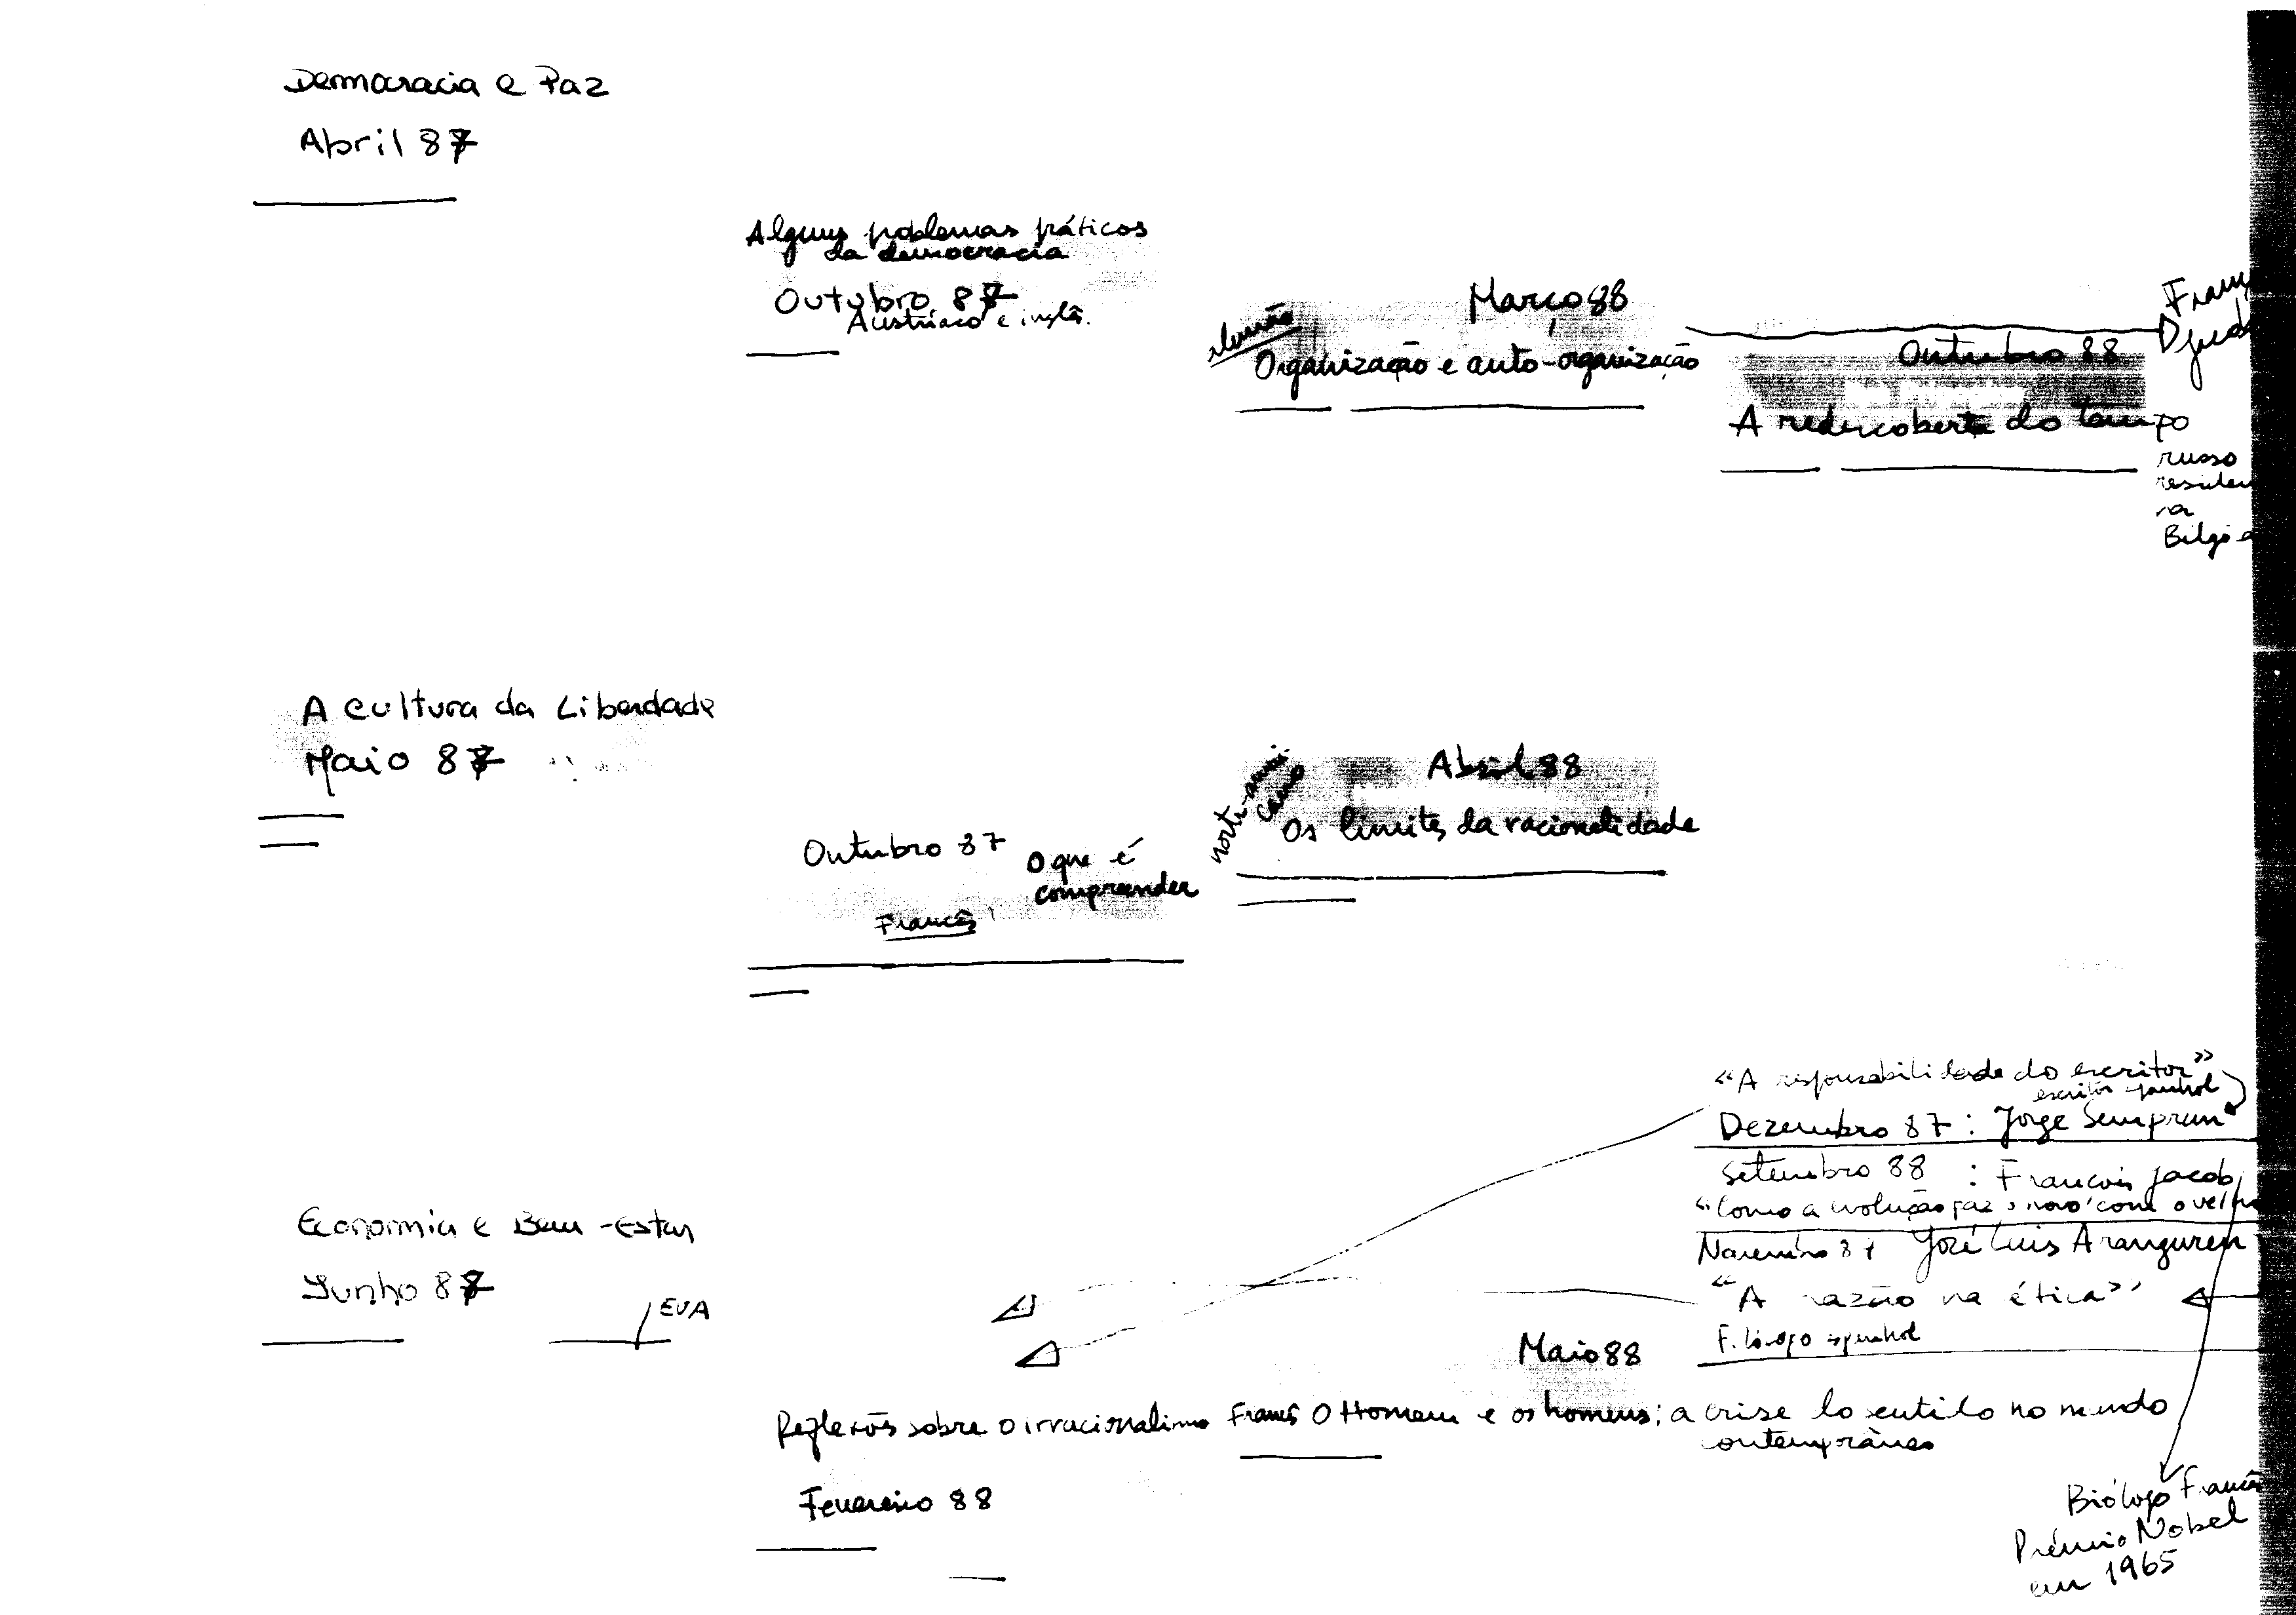 Democracia e Paz
Abril 87
Alguns problemas práticos
da democracia
Outubro 87
Austríaco e inglês.
Março 88
alemão
Organização e auto-organização
Outubro 88
A redescoberta do tempo
russo
residen
na
A cultura da Liberdade
Maio 87
Outubro 87
O que é
compreender
Francês
Abril 88
norte-ameri-
cano
Os limites da racionalidade
"A responsabilidade do escritor"
escritor espanhol
Dezembro 87 : Jorge Semprun
Setembro 88 : François Jacob
"Como a evolução faz o novo com o velho
Novembro 87 José Luis Aranguren
"A razão na ética"
Filósofo espanhol
Economia e Bem-Estar
Junho 87
EUA
Maio 88
Reflexões sobre o irracionalismo
Francês O Homem e os homens: a crise do sentido no mundo
contemporâneo
Fevereiro 88
Biólogo Francês
Prémio Nobel
em 1965